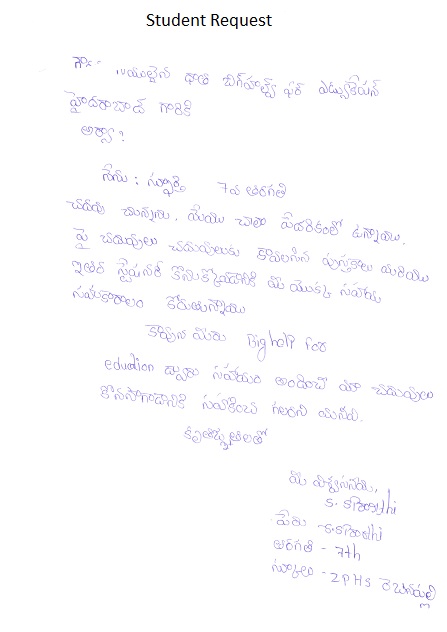 Student Request
గౌ॥ చాంద్ పాషా బిగ్‌హెల్ప్ ఫర్ ఎడ్యుకేషన్
హైదరాబాద్ గారికి
ఆర్యా !
నేను : స్ఫూర్తి 7వ తరగతి
చదువు చున్నాను. మేము చాలా పేదరికంలో ఉన్నాము.
పై చదువులు చదువుటకు కావలసిన పుస్తకాలు మరియు
ఇతర స్టేషనరీ కొనుక్కోవడానికి మీ యొక్క సహాయ
సహకారాలం కోరుతున్నాము
కావున మీరు Bighelp for
eduction ద్వారా సహాయం అందించి మా చదువులు
కొనసాగడానికి సహకరించ గలరని మనవి.
కృతజ్ఞతలతో
మీ విశ్వసనీయ,
S. Spoorthi
పేరు - S. Spoorthi
తరగతి - 7th
స్కూలు - ZPHS